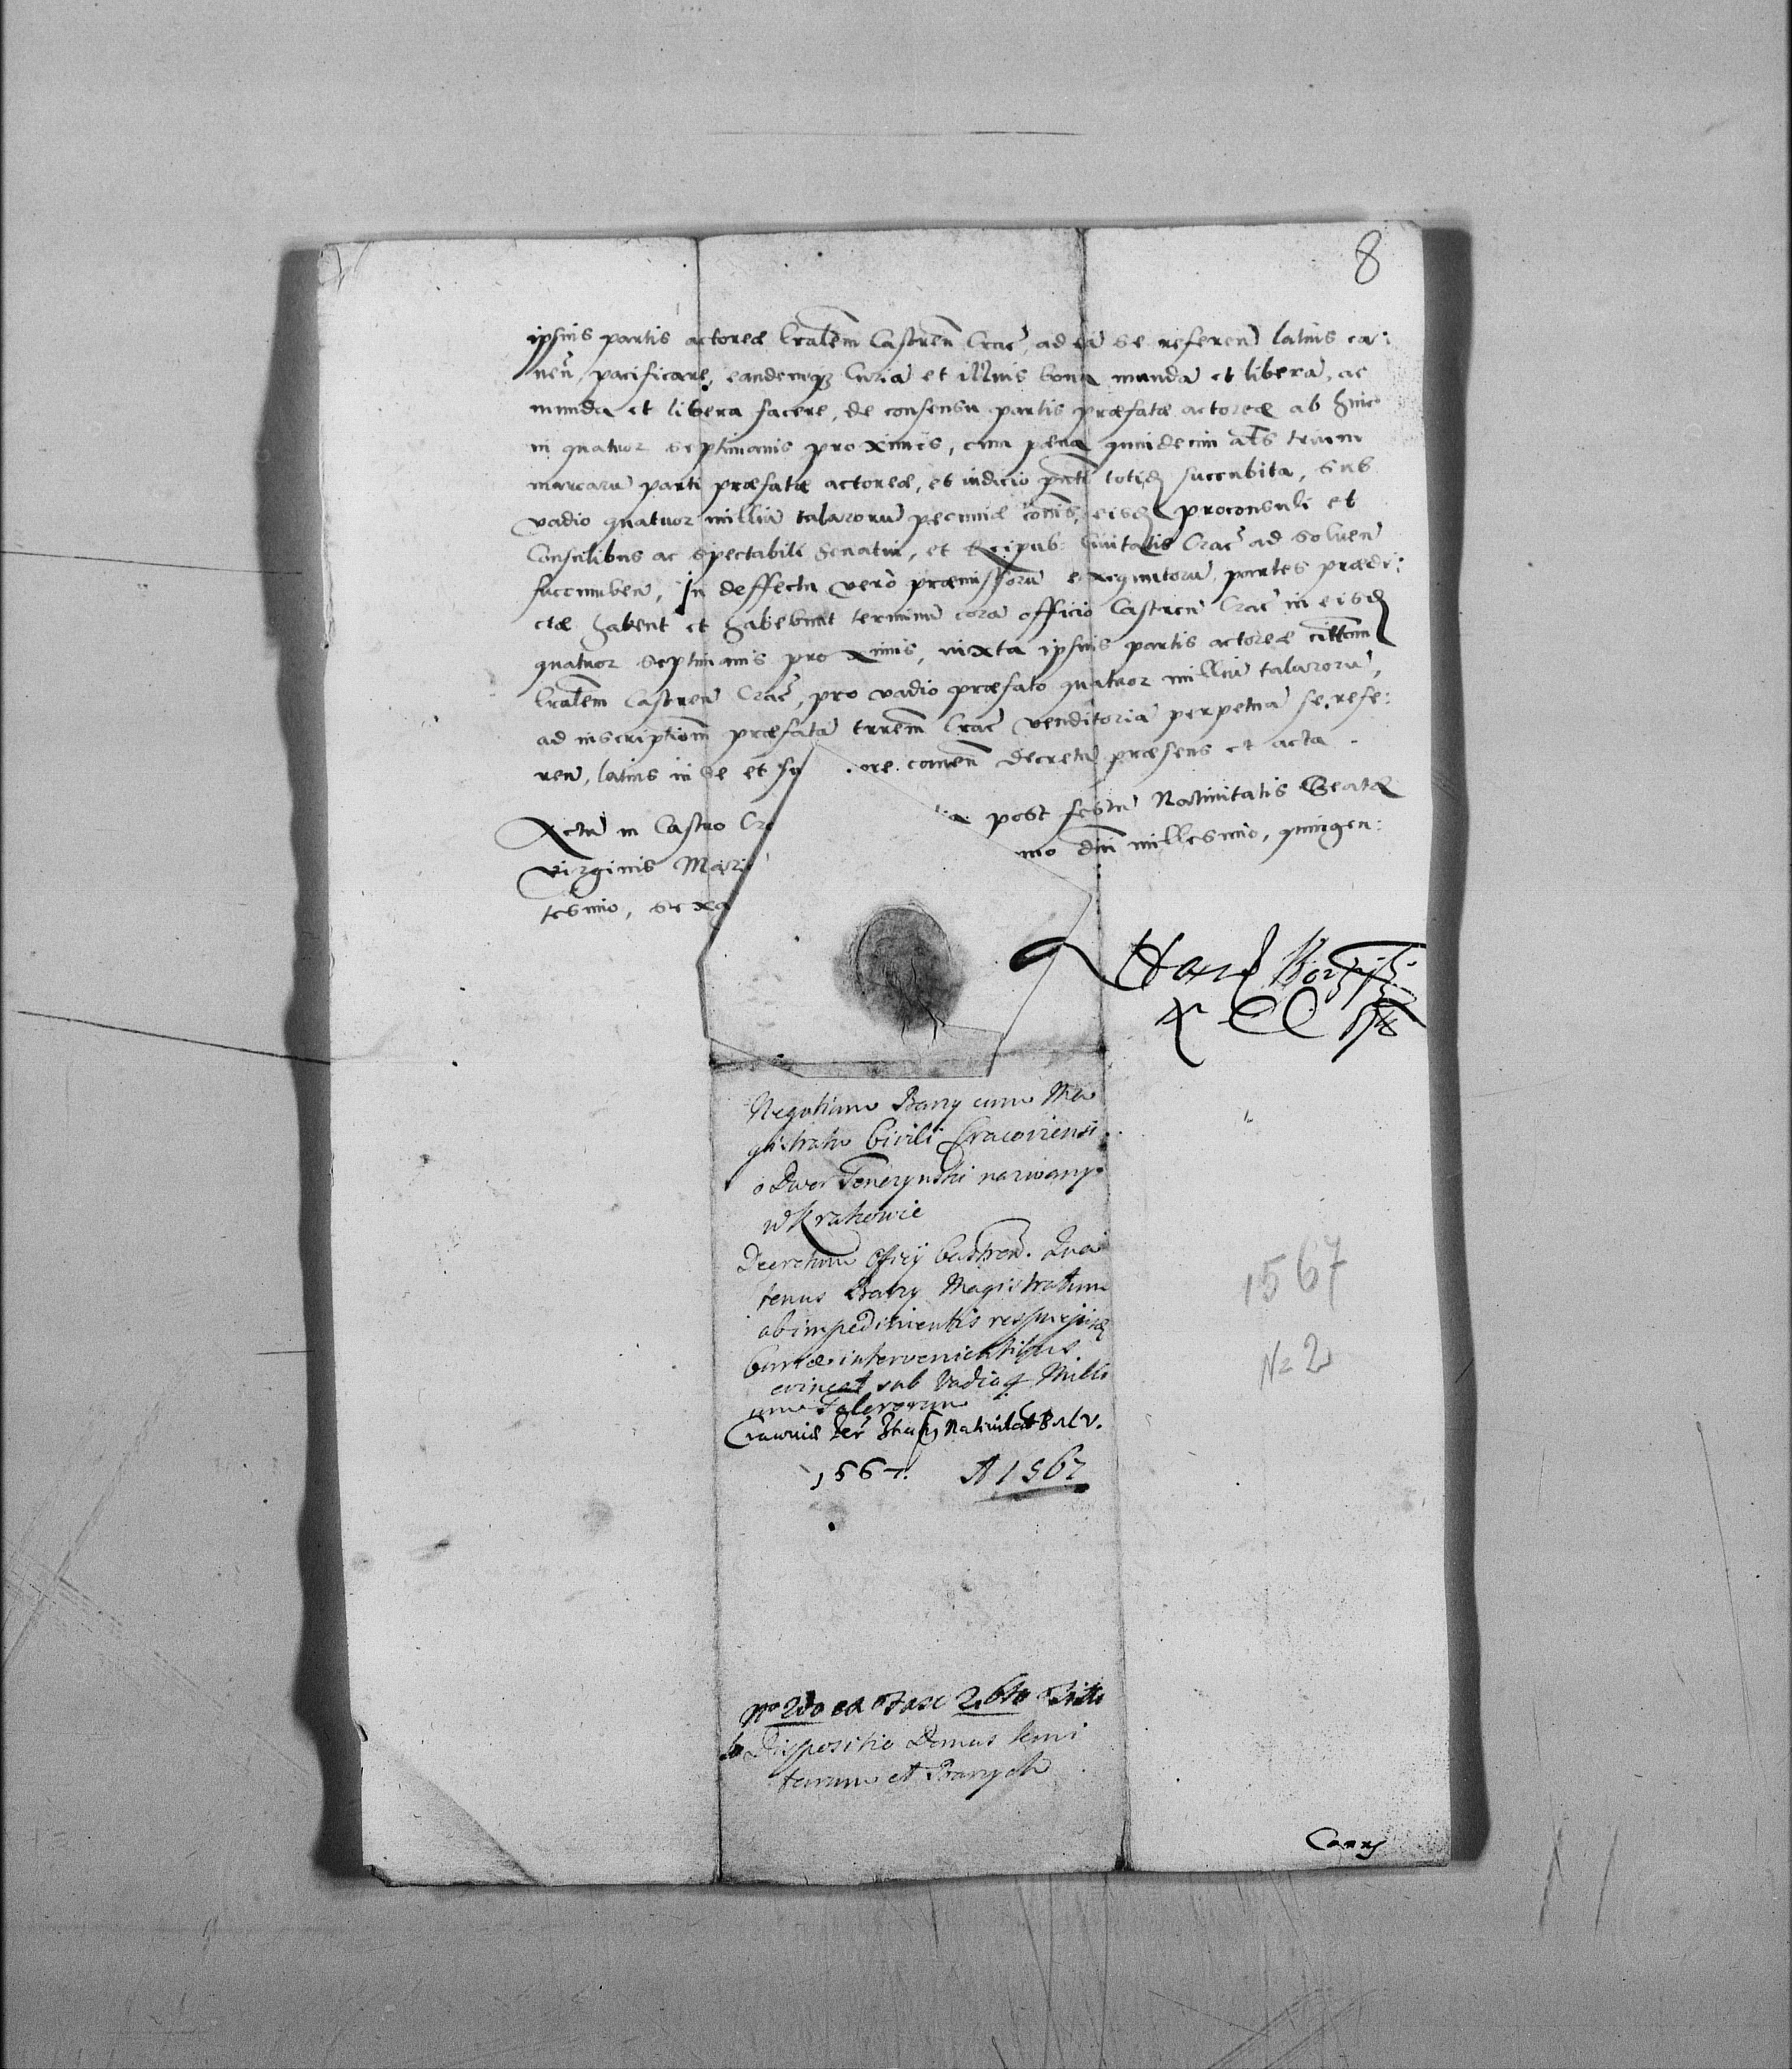 8
ipsius partis actoreæ Castren Crac, ad eā se referen latius ca:
nen, pacificare, eandemq; Curiā et illius bona munda et libera, ac
munda et libera facere, de consensu partis præfatæ actoreæ ab hinc
in quatuor septimanis proximis, cum pæna quindecim als trium
marcarū parti præfatæ actoreæ, et iudicio totid succubita, sub
vadio quatuor milliū talarorū pecuniæ cōmis, eisd proconsuli et
Consulibus ac spectabili Senatui, et Reipub: Civitatis Crac ad solven
succumben, In deffectu verò præmissorū partes prædi:
ctæ habent et habebunt terminū corā officio Castren Crac in eisd
quatuor septimanis proximis, iuxta ipsius partis actoreæ
Castren Crac, pro vadio præfato quatuor milliū talarorū,
ad inscriptionm præfatā trrem Crac venditoriā perpetuā se refe:
ren, latius in se et su ore conten decretū præsens et acta
Actū in Castro Cra post festū Nativitatis Beatæ
Virginis Mari no dni millesimo, quingen:
tesimo, sexa
Negotium Barzy cum Ma
gistratu Civili Cracoviensi
o Dwor Tenczynski nazwany
w Krakowie
Decretum Officy Castren. Qua
tenus Barzy Magistratum
ab impedimentis respectu ejusd
Curiæ intervenientibus
evincat sub Vadio 4 Milli
um Talerorum
Nativitat B M V.
1567. A 1567
1567
N= 2
No 2do ex Fasc 26to
Dispositio Domus
et Barzych